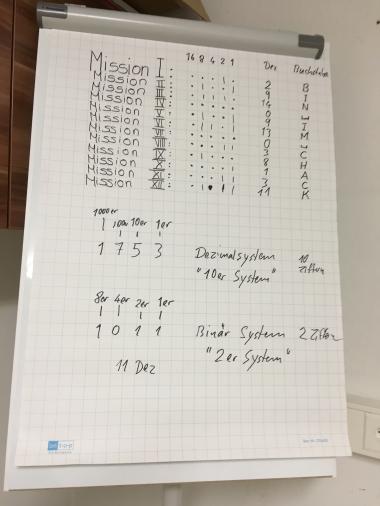 16 8 4 2 1 Dez Buchstaben
Mission I: 2 B
Mission II: 9 I
Mission III: 14 N
Mission IV: 0 ␣
Mission V: 9 I
Mission VI: 13 M
Mission VII: 0 ␣
Mission VIII: 3 C
Mission IX: 8 H
Mission X: 1 A
Mission XI: 3 C
Mission XII: 11 K
1000er 100er 10er 1er
1 7 5 3 Dezimalsystem 10 Ziffern
"10er System"
8er 4er 2er 1er
1 0 1 1 Binär System 2 Ziffern
"2er System"
11 Dez